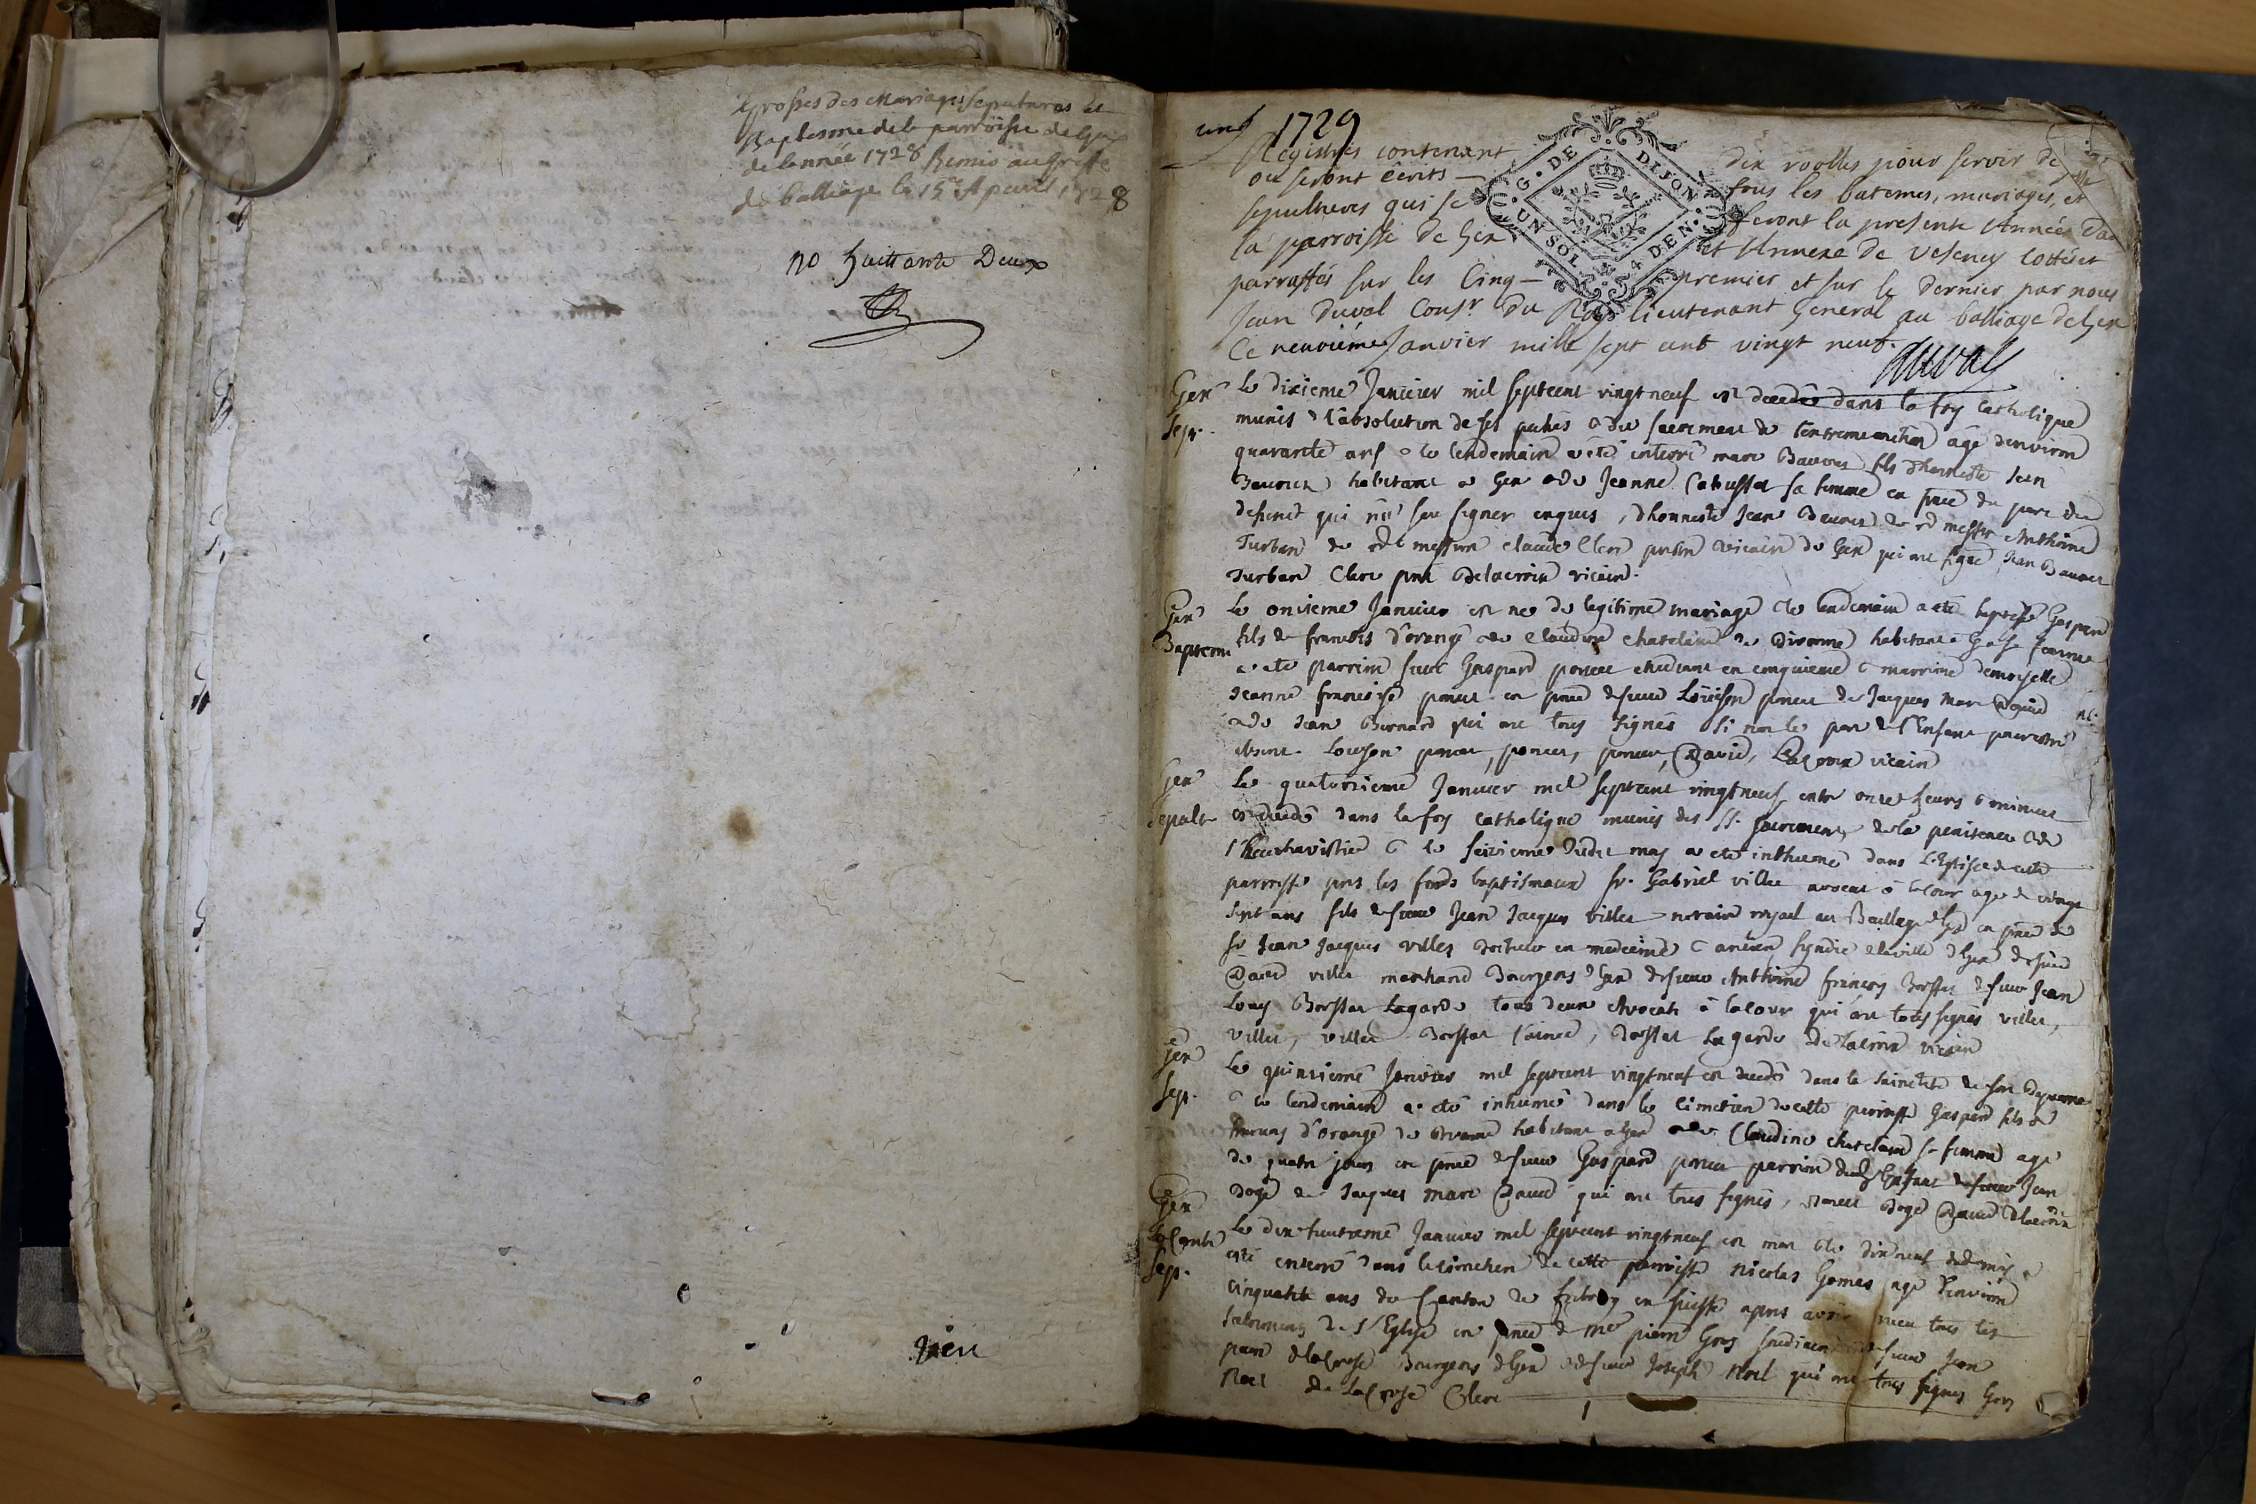 Grosses des Mariages Sepultures et
Baptesme de la parroisse de Gex
de lannée 1728 Remis au Greffe
du balliage le 15e Apvril 1728
no huittante Deux
Rien
une 1729
Registres contenant dix roolles pour servir de
ou seront écrits tous les batemes, mariages, et
sepultures qui se feront la presente Année dans
la parroisse de Gex et Annexe de Vesency cottés et
parraffés sur les Cinq premier et sur le dernier par nous
Jean Duval Consr. du Roy lieutenant General au balliage de Gex
Ce neuvieme Janvier mille sept cent vingt neuf.
Duval
G. DE DIJON
UN SOL 4 DEN.
Gex
Sep.
Le dixieme Janvier mil septcent vingt neuf est decedé dans la foy Catholique
munis de l'absolution de ses pechés & du sacrement de l'extremeonction agé denviron
quarante ans & le lendemain a été enterré marc Bauver fils d'honneste Jean
habitant a Gex & de Jeanne sa femme en pnce du pere du
defunct qui n'a seu signer enquis, d'honneste Jean de rd messire Anthoine
Turban de rd messire claude Clerc vicaire de Gex qui ont signé Jean
Turban Clerc Delacroix vicaire.
Gex
Baptem
Le onsieme Janvier est né de legitime mariage & le lendemain a eté baptisé Gaspard
fils de francois d'orange & de claudine chatelain de Divonne habitant a Gex sa femme
a eté parrin sieur Gaspard etudiant en cinquieme & marrine demoiselle
Jeanne francoise en pnce de sieur Louison de Jacques Marc David
& de Jean Burnard qui ont tous signés si non le pere de l'Enfant pour estre
absent. Louyson David, Delacroix vicaire
Gex
sepult
Le quatorsieme Janvier mil septcent vingt neuf entre onze heurs & minuit
est decedé dans la foy catholique munis des SS. sacrements de la penitence & de
l'heucharistie & le seizieme dudit moy a eté inhumé dans l'Eglise de cette
parroisse pres les fonds baptismaux sr. Gabriel villet avocat à la cour agé de vingt
sept ans fils de sieur Jean Jacques villet notaire royal au Baillage de Gex en pnce de
sr Jean Jacques villet docteur en medecine & ancien syndic de la ville de Gex de sieur
David villet marchand Bourgeois de Gex de sieur Anthoine francoy de sieur Jean
Louy Lagarde tous deux Avocats à la cour qui ont tous signés villet,
villet, villet l'aine, Lagarde Delacroix vicaire
Gex
Sep.
Le quinsieme Janvier mil septcent vingt neuf est decedé dans la saincteté de son Bapteme
& le lendemain a eté inhumé dans le cimetiere de cette parroisse Gaspard fils de
francoy d'orange de Divonne habitant a Gex & de Claudine chatelain sa femme agé
de quatre jours en pnce de sieur Gaspard parrin dudit Enfant de sieur Jean
de Jacques Marc David qui ont tous signés, David Delacroix
Gex
Sep.
Le dix huitieme Janvier mil septcent vingt neuf est mort & le dix neuf dudit moy a
eté enterré dans le cimetiere de cette parroisse Nicolas Gomas agé d'environ
cinquante ans du Canton de fribourg en suisse apres avoir receu tous les
sacrements de l'Eglise en pnce de me pierre Gros de sieur Jean
Bourgeois de Gex & de sieur Joseph Noel qui ont tous signés Gros
Noel Clerc